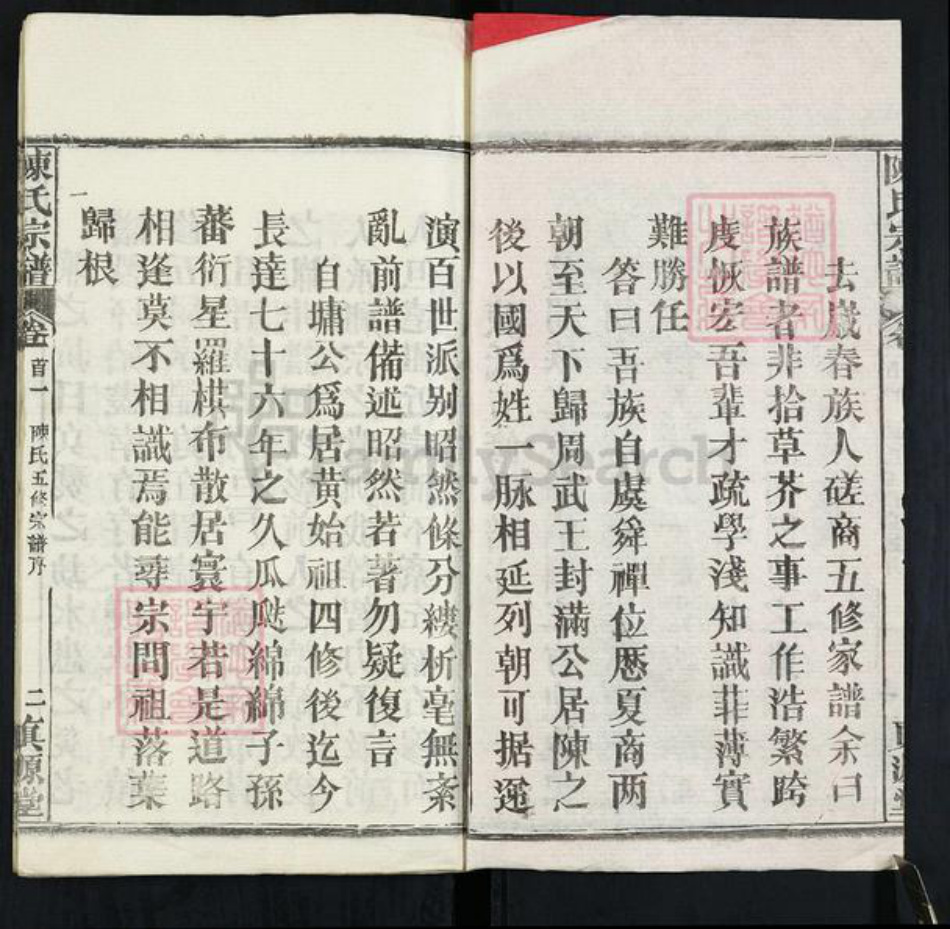 去嵗春族人磋商五修家譜余曰
族譜者非拾草芥之事工作浩繁跨
度恢宏吾輩才疏學淺知識菲薄實
難勝任
答曰吾族自虞舜禪位歷夏商两
朝至天下歸周武王封滿公居陳之
後以國爲姓一脉相延列朝可据運
演百世派别昭然條分縷析毫無紊
亂前譜備述昭然若著勿疑復言
自墉公爲居黃始祖四修後迄今
長達七十六年之久瓜瓞綿綿子孫
蕃衍星羅棋布散居寰宇若是道路
相逢莫不相識焉能尋宗問祖落葉
歸根
陳氏宗譜
卷
首一
陳氏五修宗譜序
二
真源堂
FamilySearch